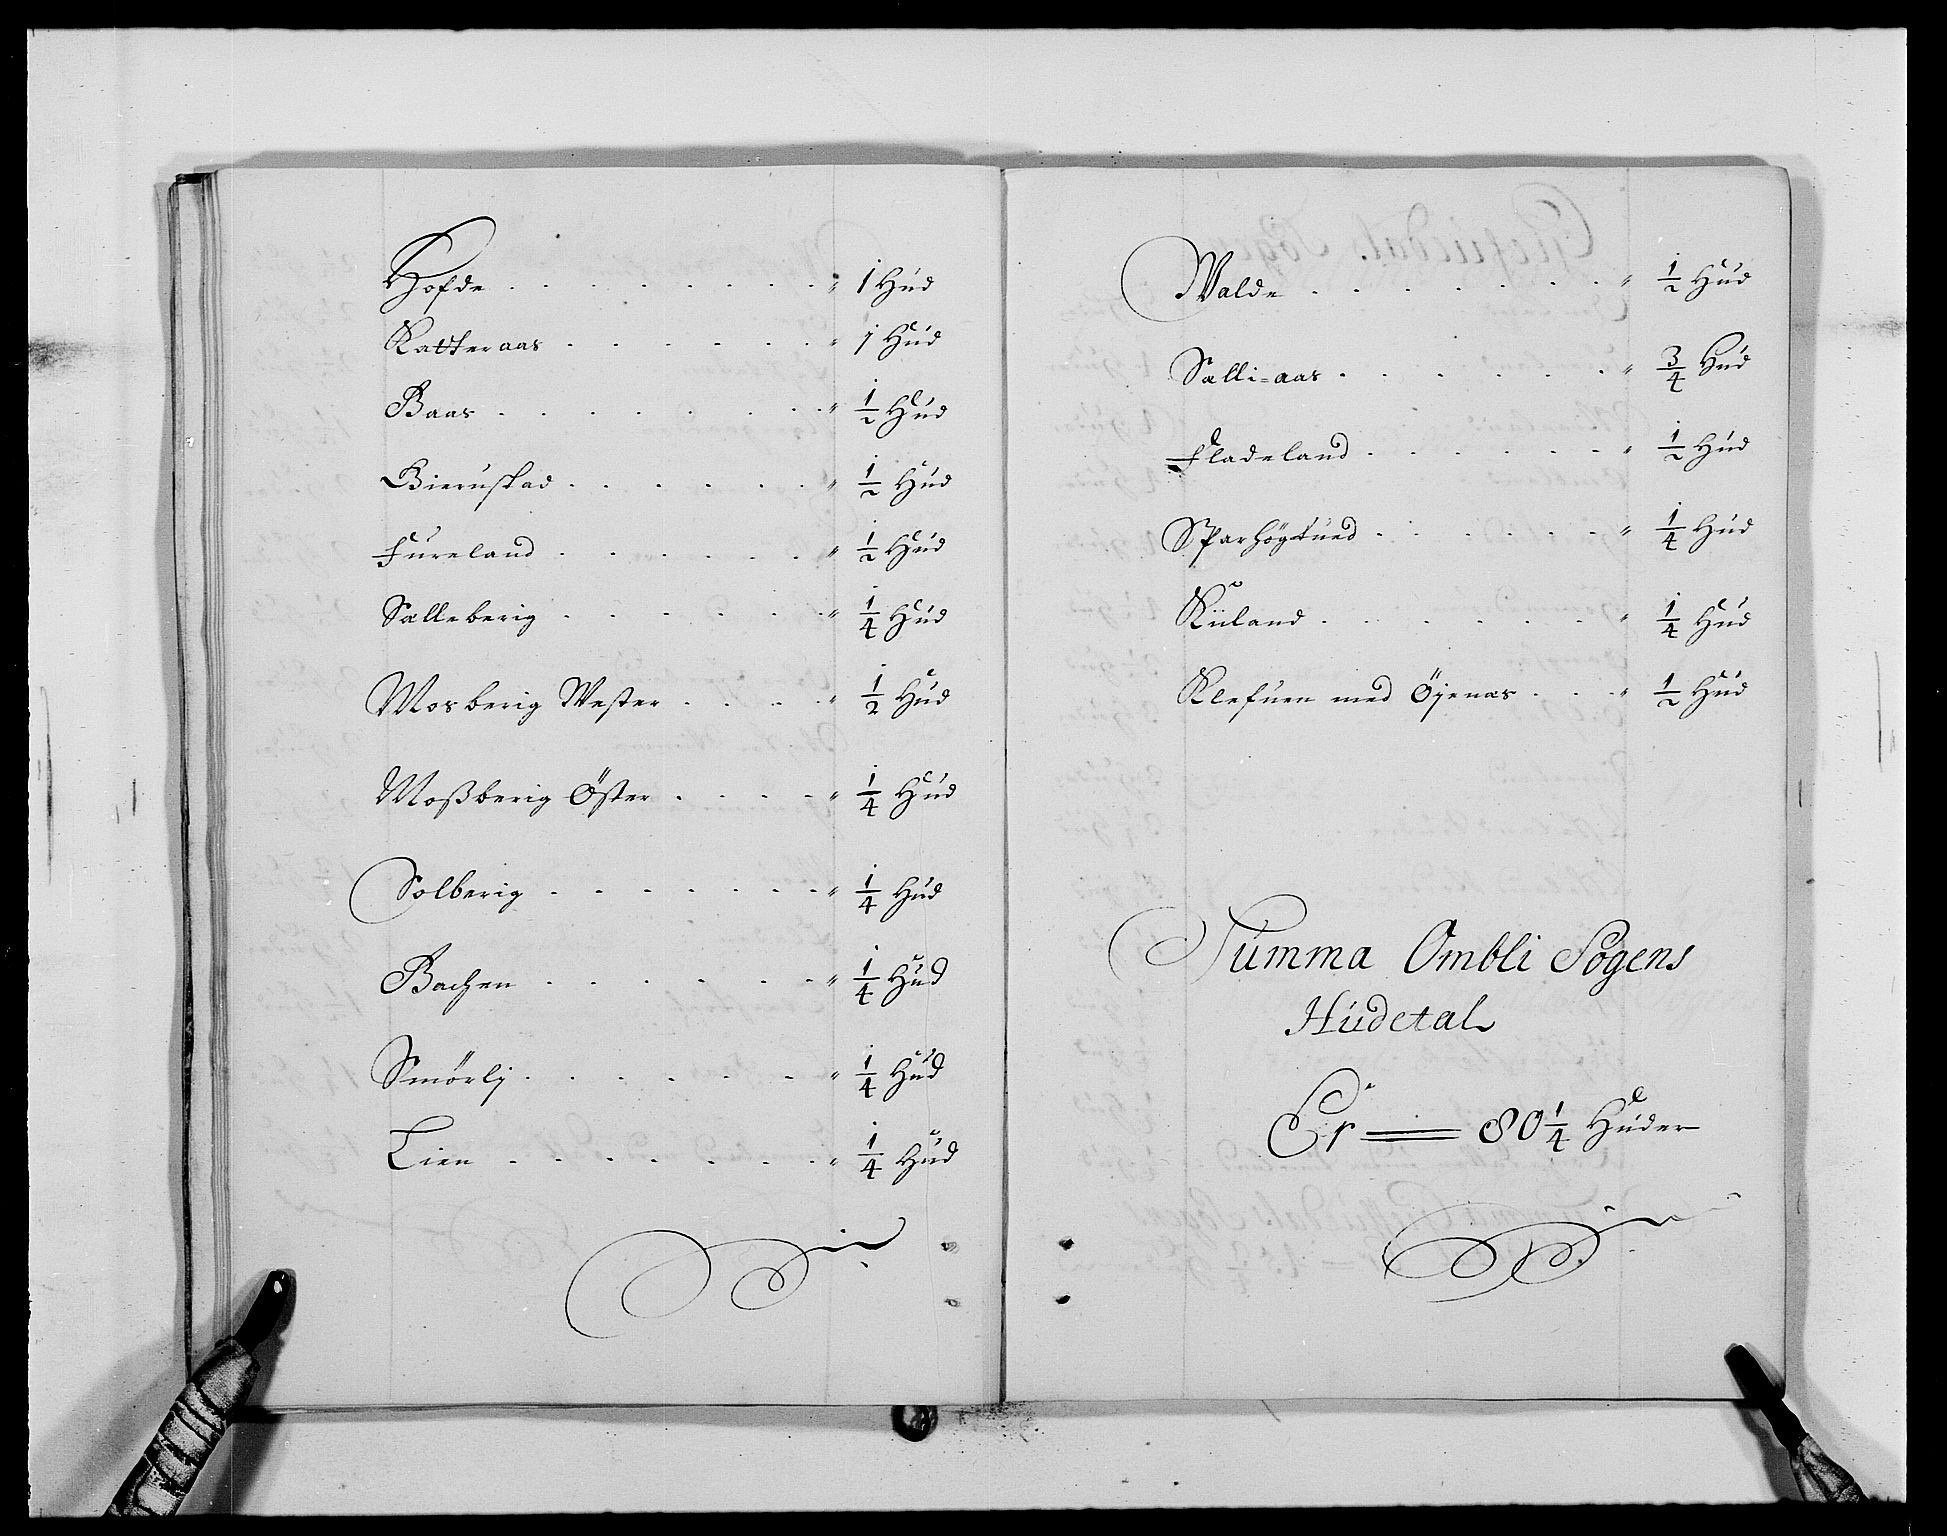 Hofde . . . . . . . . " 1 Hud
Katteraas . . . . . . " 1 Hud
Baas . . . . . . . . " 1/2 Hud
Bieruskad . . . . . . " 1/2 Hud
Fureland . . . . . . " 1/2 Hud
Salleberig . . . . . . " 1/4 Hud
Mosberig Wester . . . . " 1/2 Hud
Moßberig Öster . . . . " 1/4 Hud
Solberig . . . . . . . " 1/4 Hud
Bachen . . . . . . . " 1/4 Hud
Smörlj . . . . . . . " 1/4 Hud
Lien . . . . . . . . " 1/4 Hud
Walde . . . . . . . " 1/2 Hud
Salli=aas . . . . . . " 3/4 Hud
Fladeland . . . . . . " 1/2 Hud
Sparhögtued . . . . . . " 1/4 Hud
Kiiland . . . . . . . " 1/4 Hud
Klefuen med Öjenæs . . . " 1/2 Hud
Summa Ombli Sogens
Hudetal
Er = 80 1/4 Huder